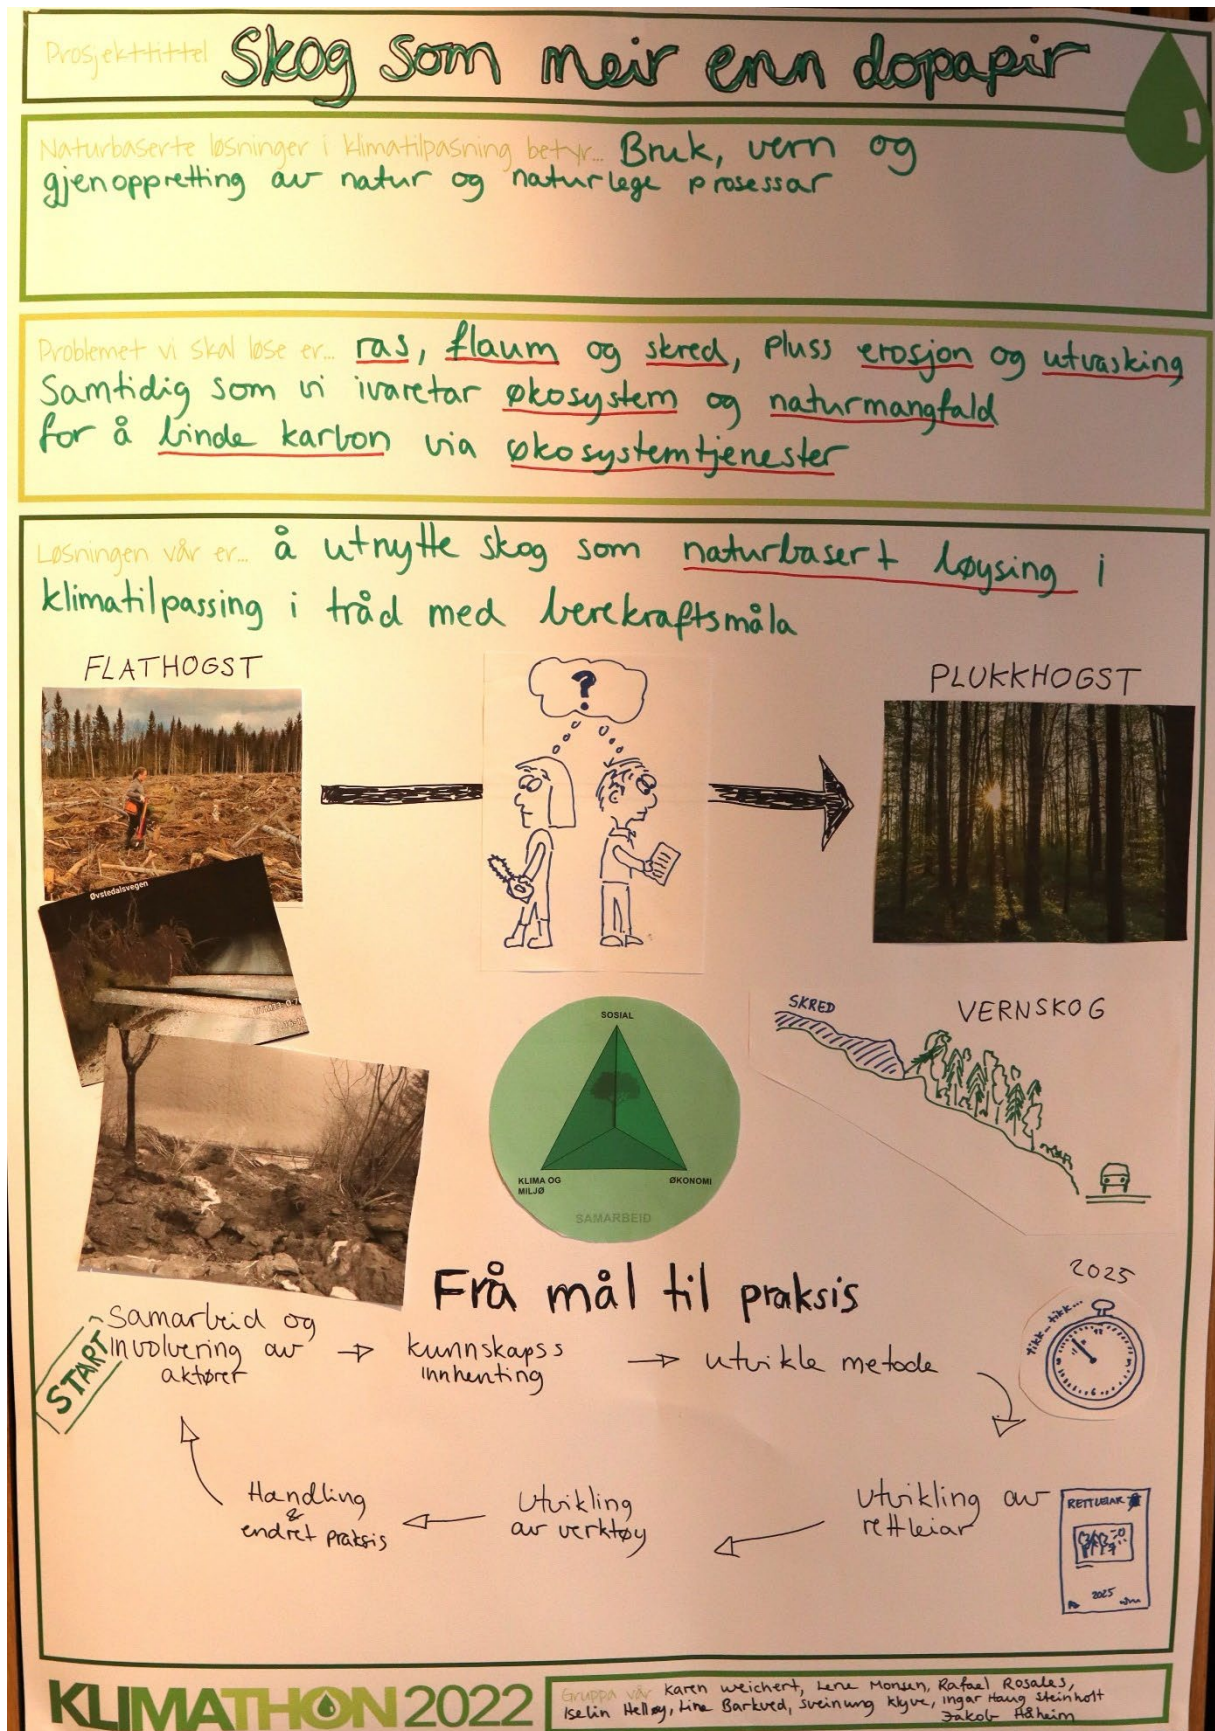 Prosjekttittel Skog som meir enn dopapir
Naturbaserte løsninger i klimatilpasning betyr... Bruk, vern og
gjenoppretting av natur og naturlege prosessar
Problemet vi skal løse er... ras, flaum og skred, pluss erosjon og utvasking
Samtidig som vi ivaretar økosystem og naturmangfald
for å binde karbon via økosystemtjenester
Løsningen vår er... å utnytte skog som naturbasert løysing i
klimatilpassing i tråd med berekraftsmåla
FLATHOGST
?
PLUKKHOGST
Øvstedalsvegen
SKRED
VERNSKOG
SOSIAL
KLIMA OG
MILJØ
ØKONOMI
SAMARBEID
Frå mål til praksis
2025
tikk-tikk...
START
Samarbeid og
involvering av
aktører
kunnskapss
innhenting
utvikle metode
Utvikling av
rettleiar
RETTLEIAR
2025
Utvikling
av verktøy
Handling
&
endret praksis
KLIMATHON 2022
Gruppa vår Karen Weichert, Lene Monsen, Rafael Rosales,
Iselin Helløy, Line Barkved, Sveinung Klyve, Ingar Haug Steinholt
Jakob Håheim